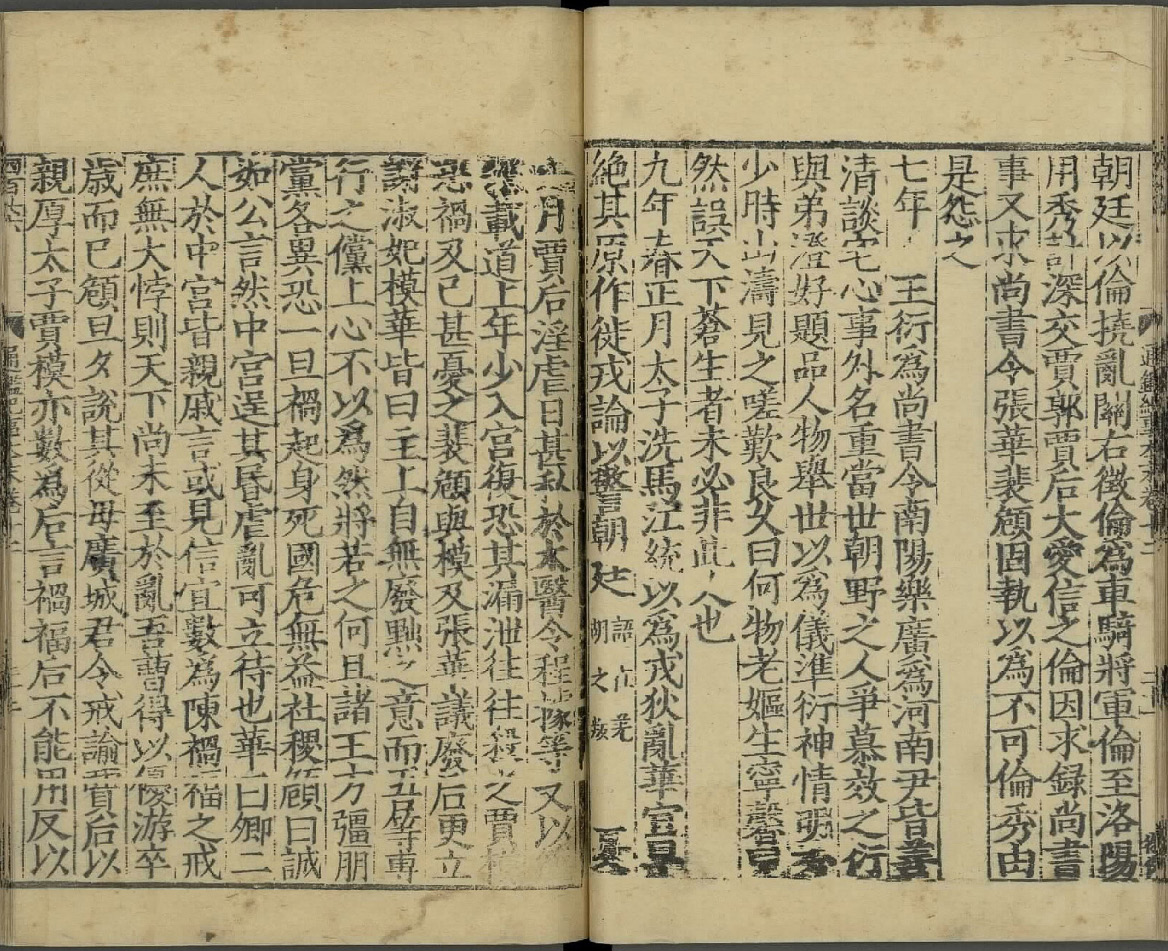 朝廷以倫撓亂關右徵倫為車騎將軍倫至洛陽
用秀計深交賈郭賈后大愛信之倫因求録尚書
事又求尚書令張華裴頠固執以為不可倫秀由
是怨之
七年 王衍為尚書令南陽樂廣為河南尹皆善
清談宅心事外名重當世朝野之人爭慕效之衍
與弟澄好題品人物舉世以為儀準衍神情明秀
少時山濤見之嗟歎良久曰何物老嫗生寧馨兒
然誤天下蒼生者未必非此人也
九年春正月太子洗馬江統以為戎狄亂華宜早
絶其原作徙戎論以警朝廷 語在羌胡之叛 夏
六月賈后淫虐日甚私於太醫令程據等又以
載道上年少入宮復恐其漏泄往往殺之賈模
恐禍及己甚憂之裴頠與模及張華議廢后更立
謝淑妃模華皆曰主上自無廢黜之意而吾等專
行之儻上心不以為然將若之何且諸王方彊朋
黨各異恐一旦禍起身死國危無益社稷頠曰誠
如公言然中宮逞其昏虐亂可立待也華曰卿二
人於中宮皆親戚言或見信宜數為陳禍福之戒
庶無大悖則天下尚未至於亂吾曹得以優游卒
歲而已頠旦夕說其從母廣城君令戒諭賈后以
親厚太子賈模亦數為后言禍福后不能用反以